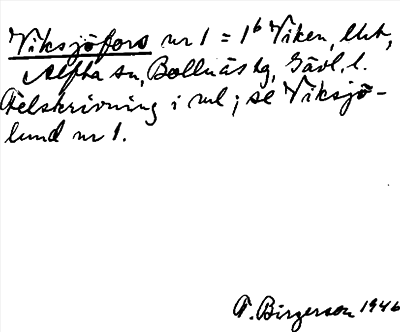 Viksjöfors nr 1 = 1b Viken, lht,
Alfta sn, Bollnäs tg, Gävl. l.
Felskrivning i ml; se Viksjö-
lund nr 1.
F. Birgerson 1946